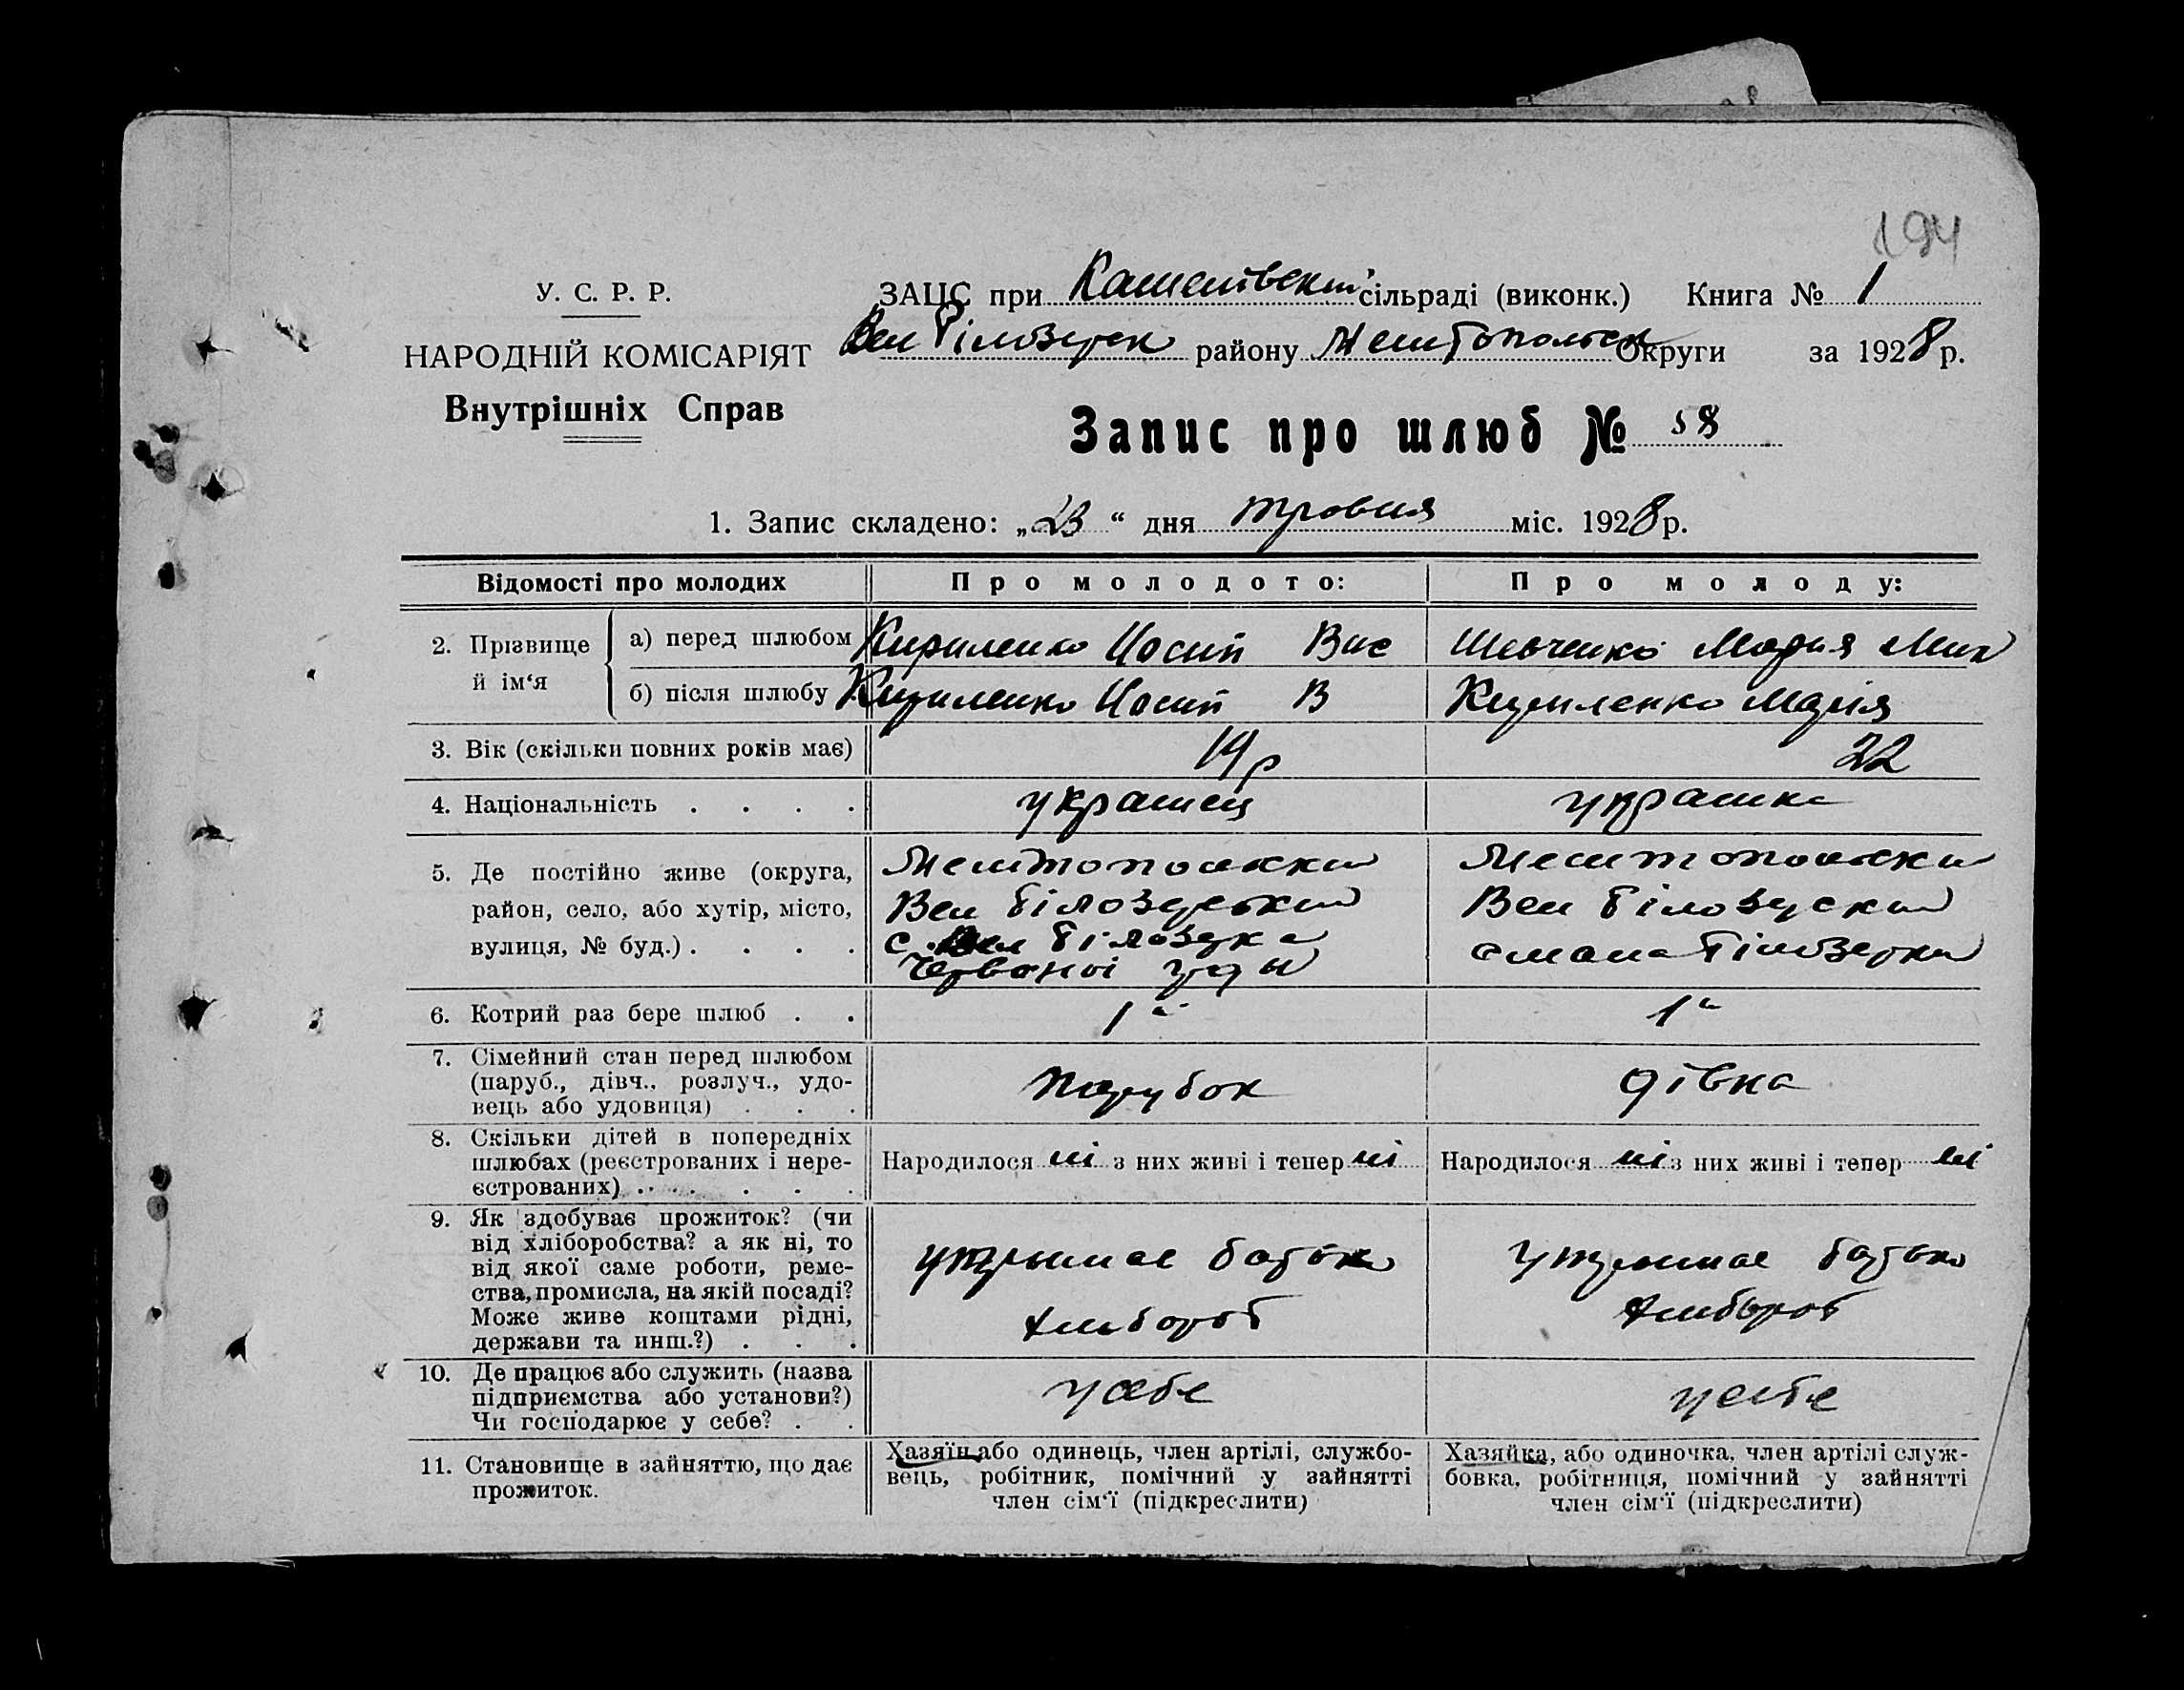 194
У. С. Р. Р.
НАРОДНІЙ КОМІСАРІЯТ
Внутрішніх Справ
ЗАЦС при сільраді (виконк.) Книга № 1
Вел Білозерск району Мелітопольск Округи за 1928 р.
Запис про шлюб № 58
1. Запис складено: „23“ дня травня міс. 1928 р.
Відомості про молодих
Про молодого:
Про молоду:
2. Прізвище й ім‘я
а) перед шлюбом
Кириленко Йосип Вас
Шевченко Мария Мих
б) після шлюбу
Кириленко Йосип В
Кириленко Марія
3. Вік (скільки повних років має)
19 р
22
4. Національність . . . .
украінец
украінка
5. Де постійно живе (округа,
район, село, або хутір, місто,
вулиця, № буд.) . . . .
Мелітопольски
Вел Білозерський
с. Вел Білозерка
Червоноі
Мелітопольски
Вел Білозерский
с мала Білозерка
6. Котрий раз бере шлюб . .
1й
1й
7. Сімейний стан перед шлюбом
(паруб., дівч., розлуч., удо-
вець або удовиця) . . .
Парубок
дівка
8. Скільки дітей в попередніх
шлюбах (реєстрованих і нере-
єстрованих) . . . . .
Народилося ні з них живі і тепер ні
Народилося ні з них живі і тепер ні
9. Як здобуває прожиток? (чи
від хліборобства? а як ні, то
від якої саме роботи, реме-
ства, промисла, на якій посаді?
Може живе коштами рідні,
держави та инш.?) . . .
утримає батько
хлібороб
утримає батько
хлібороб
10. Де працює або служить (назва
підприємства або установи?)
Чи господарює у себе? . .
у себе
у себе
11. Становище в зайняттю, що дає
прожиток.
Хазяїн або одинець, член артілі, службо-
вець, робітник, помічний у зайнятті
член сім‘ї (підкреслити)
Хазяйка, або одиночка, член артілі служ-
бовка, робітниця, помічний у зайнятті
член сім‘ї (підкреслити)